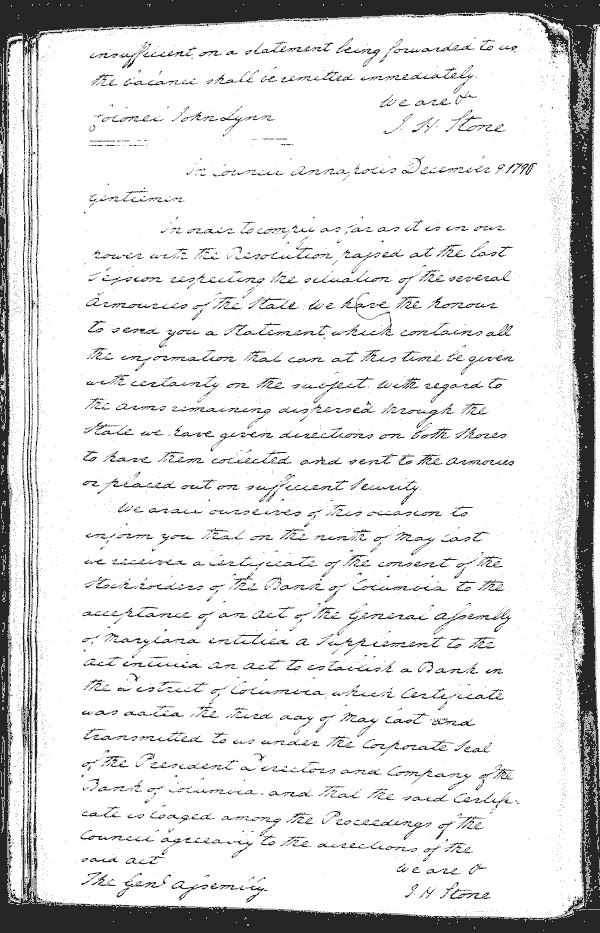 insufficient, on a statement being forwarded to us
the balance shall be remitted immediately.
We are &
Colonel John Lynn
J. H. Stone
In Council Annapolis December 9 1796
Gentlemen
In order to comply as far as it is in our
power with the Resolution passed at the last
Session respecting the situation of the several
Armouries of the State. We have the honour
to send you a Statement, which contains all
the information that can at this time be given
with certainty on the subject. With regard to
the arms remaining dispersed through the
State we have given directions on both Shores
to have them collected and sent to the Armouries
or placed out on sufficient Security.
We avail ourselves of this occasion to
inform you that on the ninth of May last
we received a Certificate of the consent of the
Stockholders of the Bank of Columbia to the
acceptance of an Act of the General Assembly
of Maryland entitled A Supplement to the
Act entitled An Act to establish a Bank in
the District of Columbia, which Certificate
was dated the third day of May last and
transmitted to us under the Corporate Seal
of the President Directors and Company of the
Bank of Columbia. and that the said Certifi-
cate is lodged among the Proceedings of the
Council agreeably to the directions of the
said act
We are &
The Genl Assembly
J H Stone